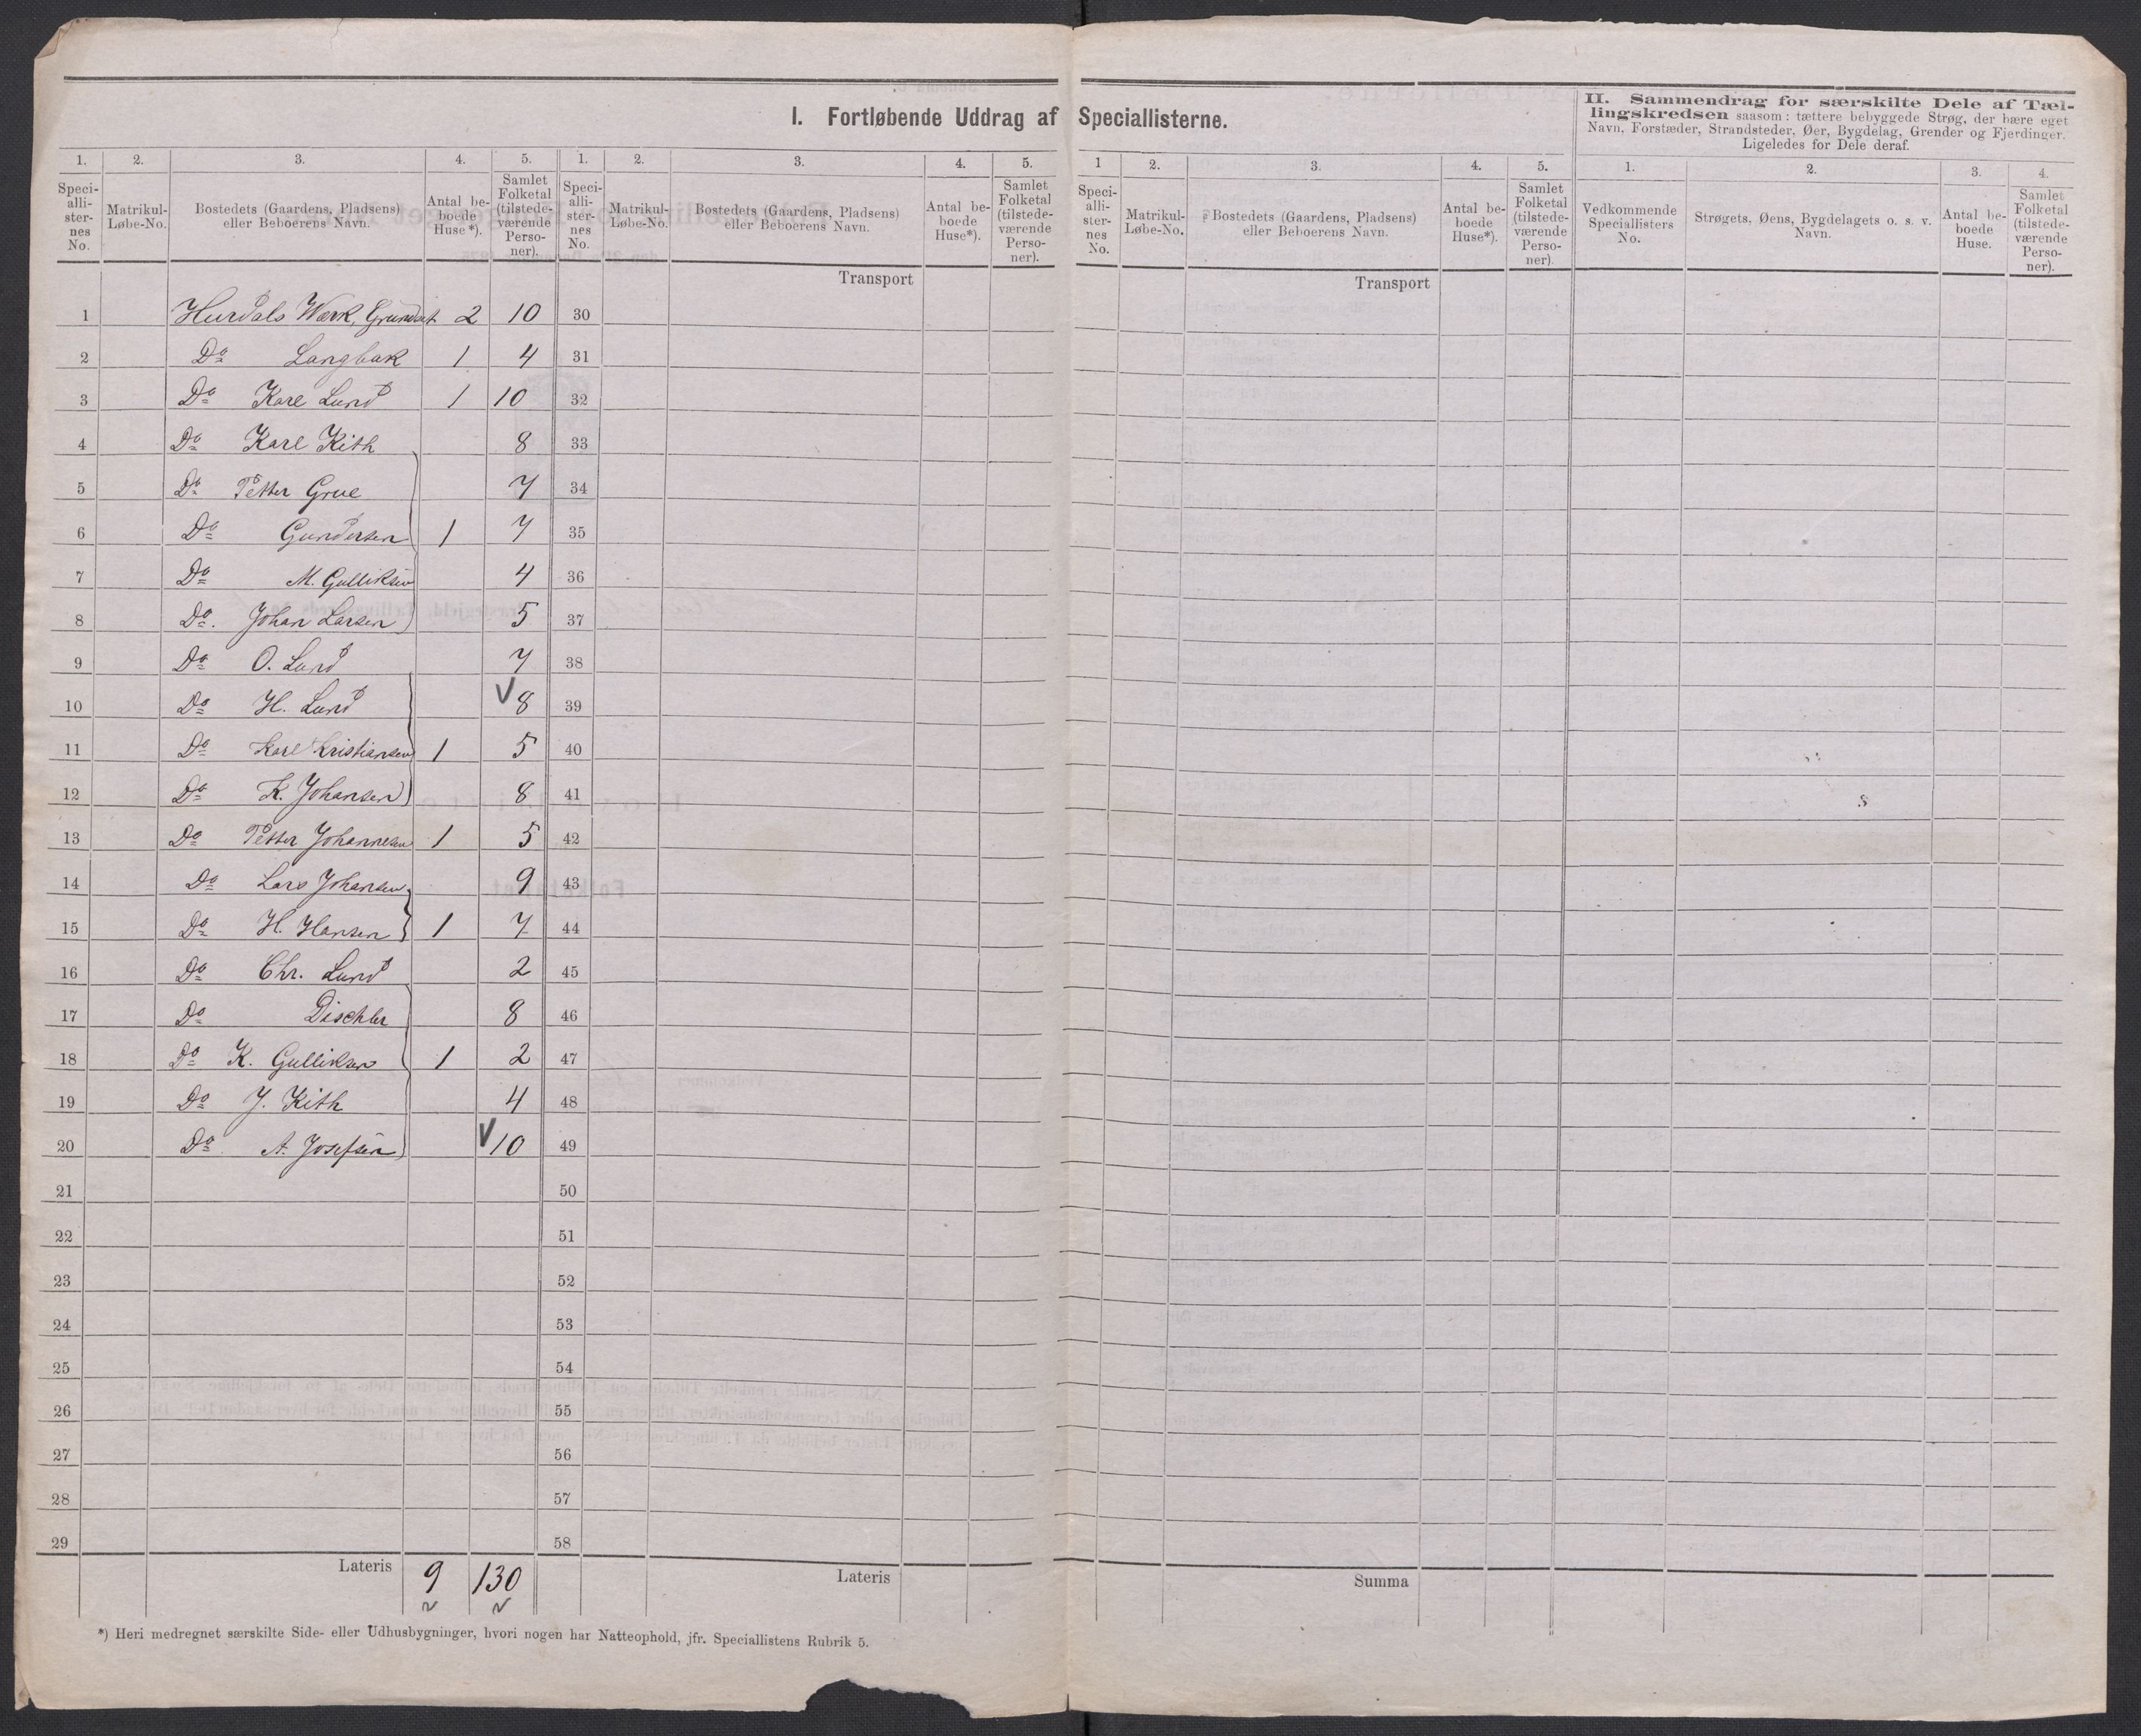 I. Fortløbende Uddrag af Speciallisterne.
II. Sammendrag for særskilte Dele af Tæl-
lingskredsen saasom: tættere bebyggede Strøg, der bære eget
Navn, Forstæder, Strandsteder, Øer, Bygdelag, Grender og Fjerdinger.
Ligeledes for Dele deraf.
1. 2. 3. 4. 5. 1. 2. 3. 4. 5. 1 2. 3. 4. 5. 1. 2. 3. 4.
Speci-
alli-
ster-
nes
No.
Matrikul-
Løbe-No.
Bostedets (Gaardens, Pladsens)
eller Beboerens Navn.
Antal be-
boede
Huse*).
Samlet
Folketal
(tilstede-
værende
Perso-
ner).
Speci-
alli-
ster-
nes
No.
Matrikul-
Løbe-No.
Bostedets (Gaardens, Pladsens)
eller Beboerens Navn.
Antal be-
boede
Huse*).
Samlet
Folketal
(tilstede-
værende
Perso-
ner).
Speci-
alli-
ster-
nes
No.
Matrikul-
Løbe-No.
Bostedets (Gaardens, Pladsens)
eller Beboerens Navn.
Antal be-
boede
Huse*).
Samlet
Folketal
(tilstede-
værende
Perso-
ner).
Vedkommende
Speciallisters
No.
Strøgets, Øens, Bygdelagets o. s. v.
Navn.
Antal be-
boede
Huse.
Samlet
Folketal
(tilstede-
værende
Perso-
ner).
Transport
Transport
1 Hurdals Værk, Grundset 2 10 30
2 Do Langbak 1 4 31
3 Do Karl Lund 1 10 32
4 Do Karl Kith 8 33
5 Do Petter Grue 7 34
6 Do Gundersen 1 7 35
7 Do M. Gulliksen 4 36
8 Do. Johan Larsen 5 37
9 Do O. Lund 7 38
10 Do H. Lund V 8 39
11 Do Karl Kristiansen 1 5 40
12 Do K. Johansen 8 41
13 Do Petter Johannesen 1 5 42
14 Do Lars Johansen 9 43
15 Do H. Hansen 1 7 44
16 Do Chr. Lund 2 45
17 Do Dischler 8 46
18 Do K. Gulliksen 1 2 47
19 Do J. Kith 4 48
20 Do A. Josefsen V 10 49
21 50
22 51
23 52
24 53
25 54
26 55
27 56
28 57
29 58
Lateris 9 130
Lateris
Summa
*) Heri medregnet særskilte Side- eller Udhusbygninger, hvori nogen har Natteophold, jfr. Speciallistens Rubrik 5.